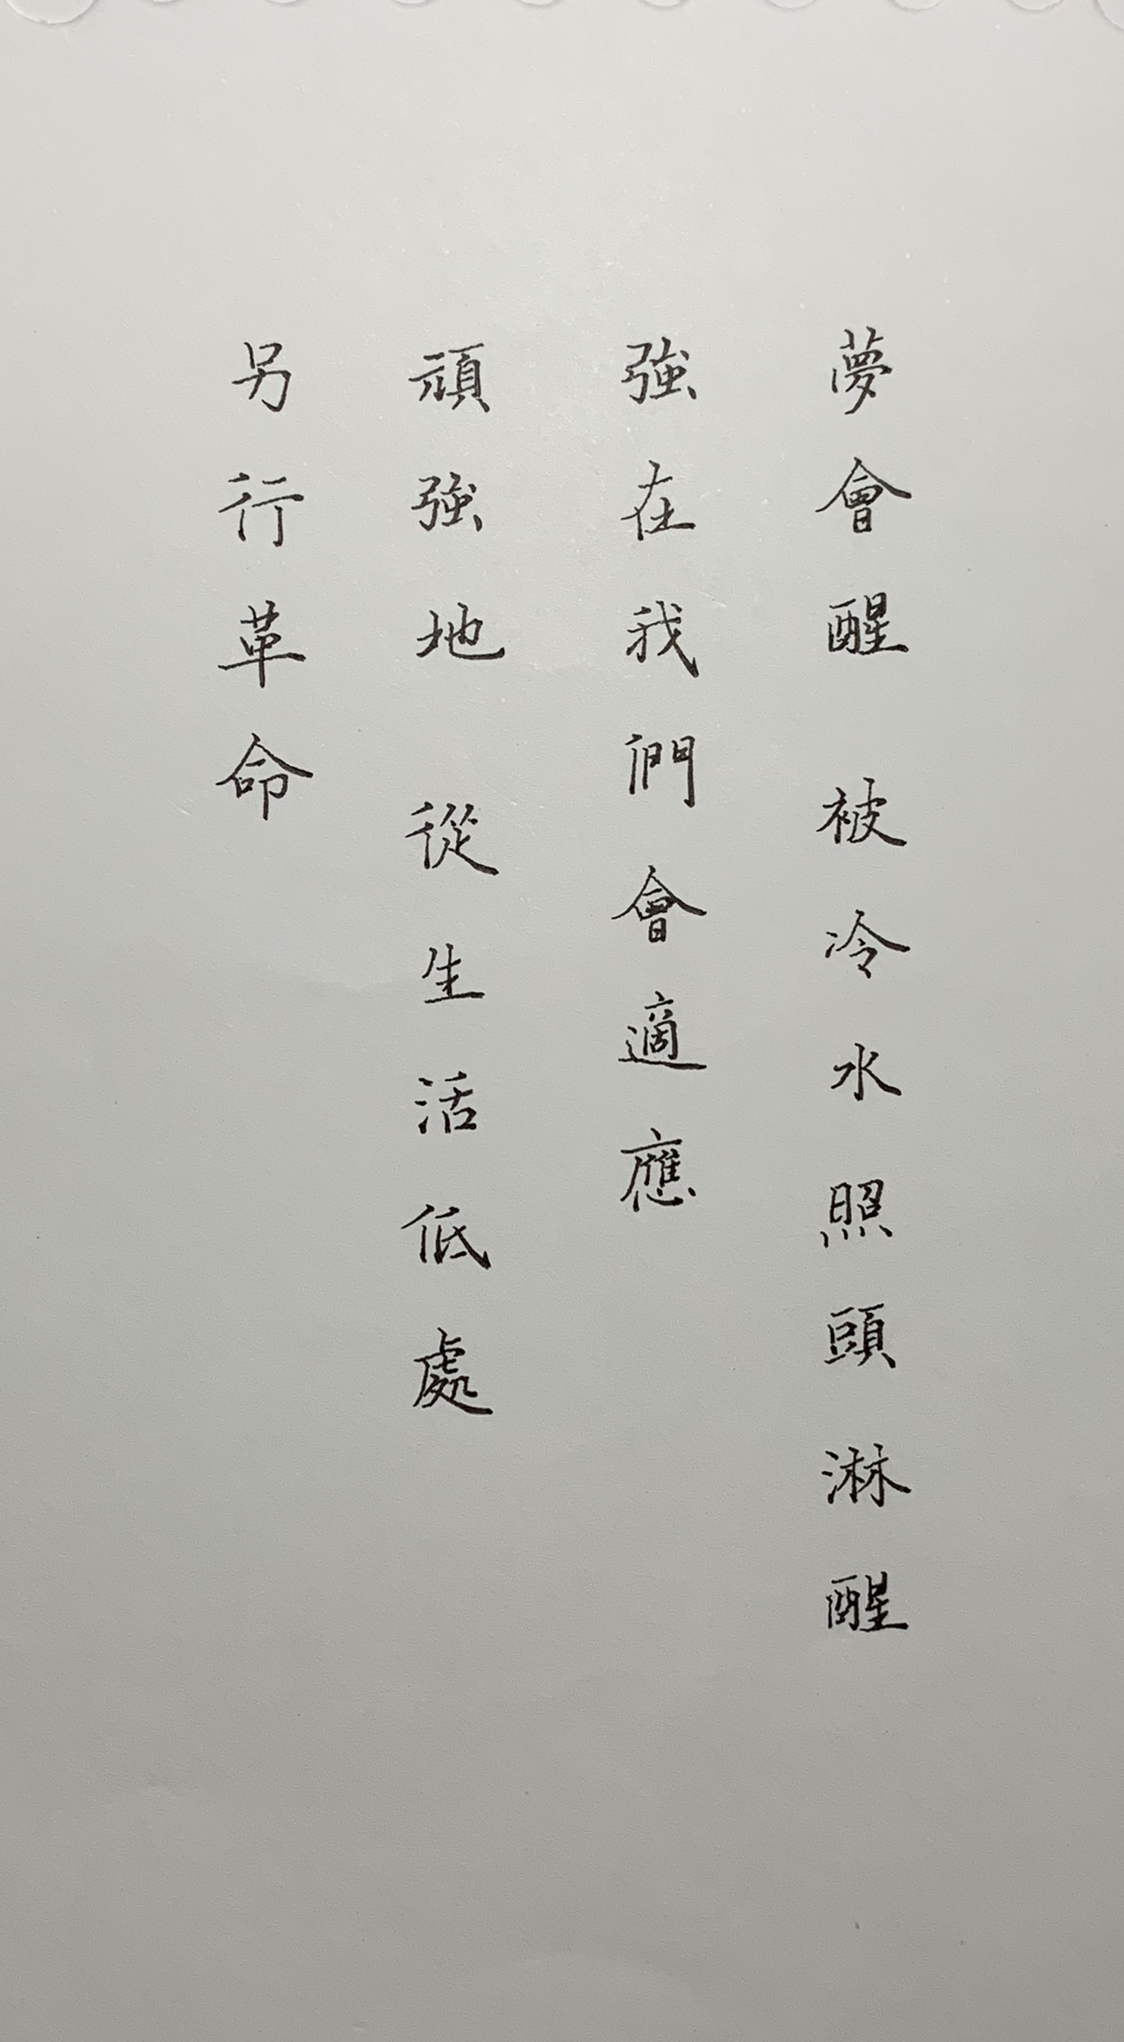 夢會醒 被冷水照頭淋醒
強在我們會適應
頑強地 從生活低處
另行革命